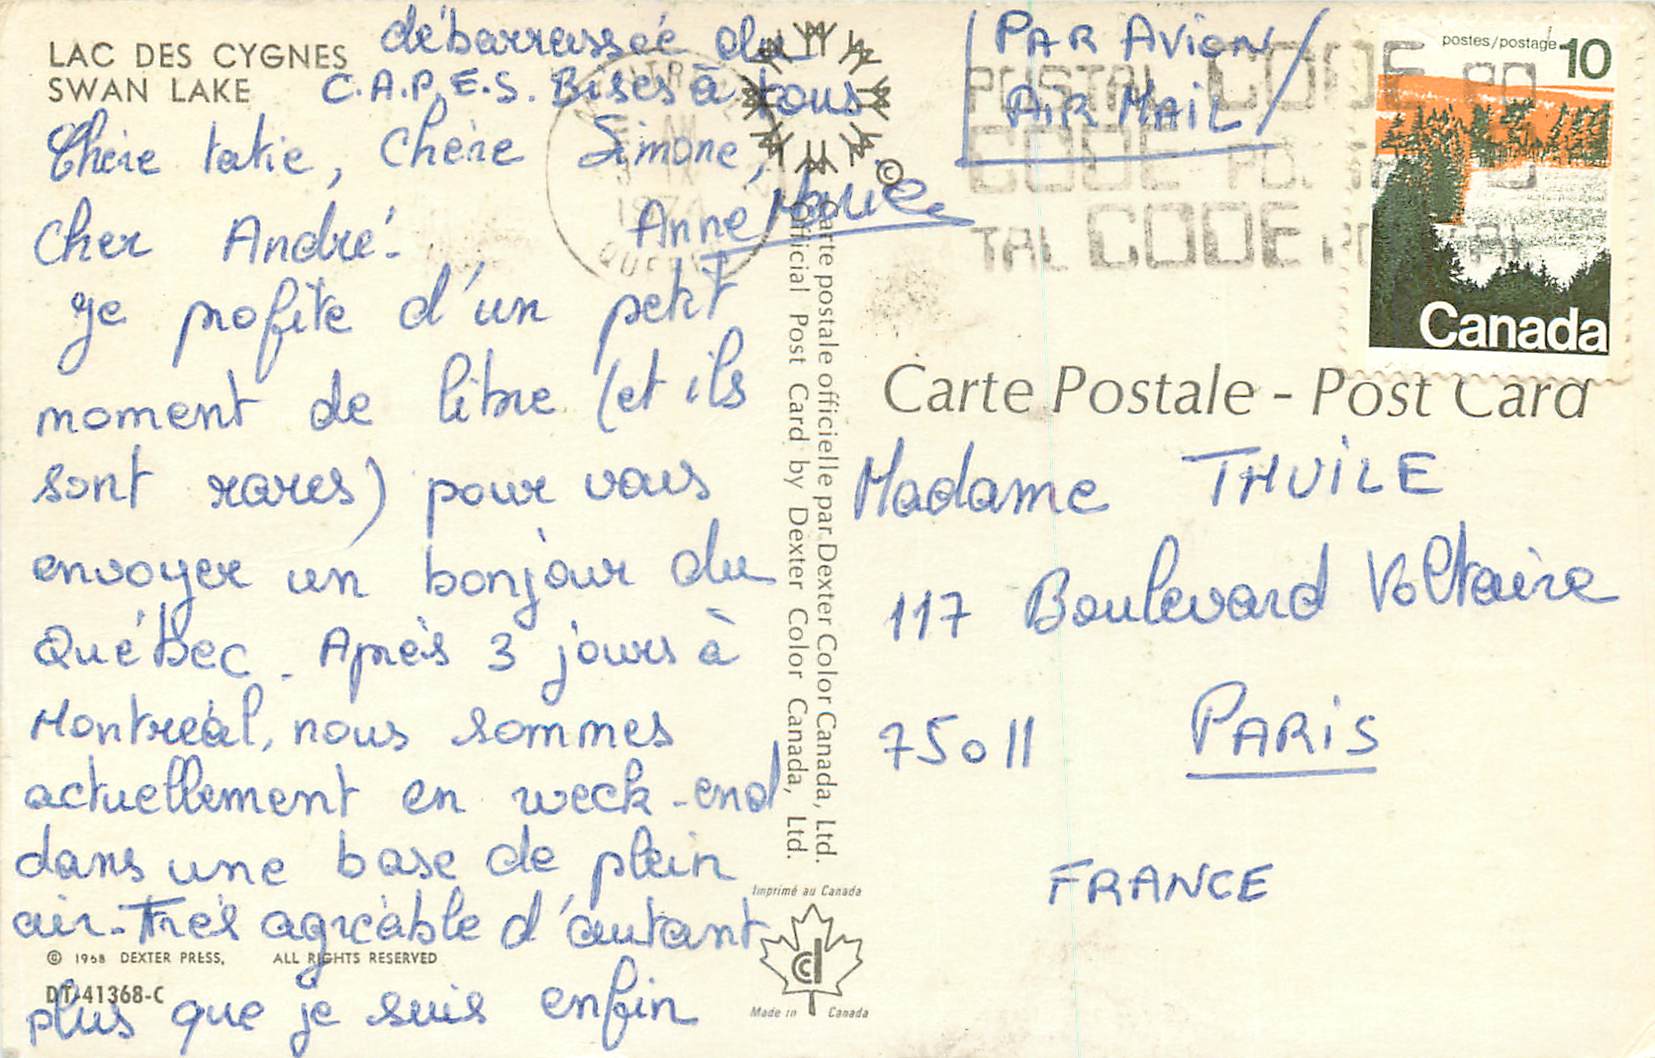 LAC DES CYGNES
SWAN LAKE
Chère tatie, Chère Simone,
Cher André.
Je profite d'un petit
moment de libre (et ils
sont rares) pour vous
envoyer un bonjour du
Québec. Après 3 jours à
Montréal, nous sommes
actuellement en week-end
dans une base de plein
air. Très agréable d'autant
plus que je suis enfin
débarrassée du
C.A.P.E.S. Bises à tous
Anne Marie
© 1968 DEXTER PRESS, ALL RIGHTS RESERVED
DT-41368-C
©
Carte postale officielle par Dexter Color Canada, Ltd.
Official Post Card by Dexter Color Canada, Ltd.
Imprimé au Canada
cd
Made in Canada
PAR AVION
AIR MAIL
POSTAL CODE PO
CODE
TAL CODE
QUEBEC
postes/postage 10
Canada
Carte Postale - Post Card
Madame THUILE
117 Boulevard Voltaire
75011 PARIS
FRANCE